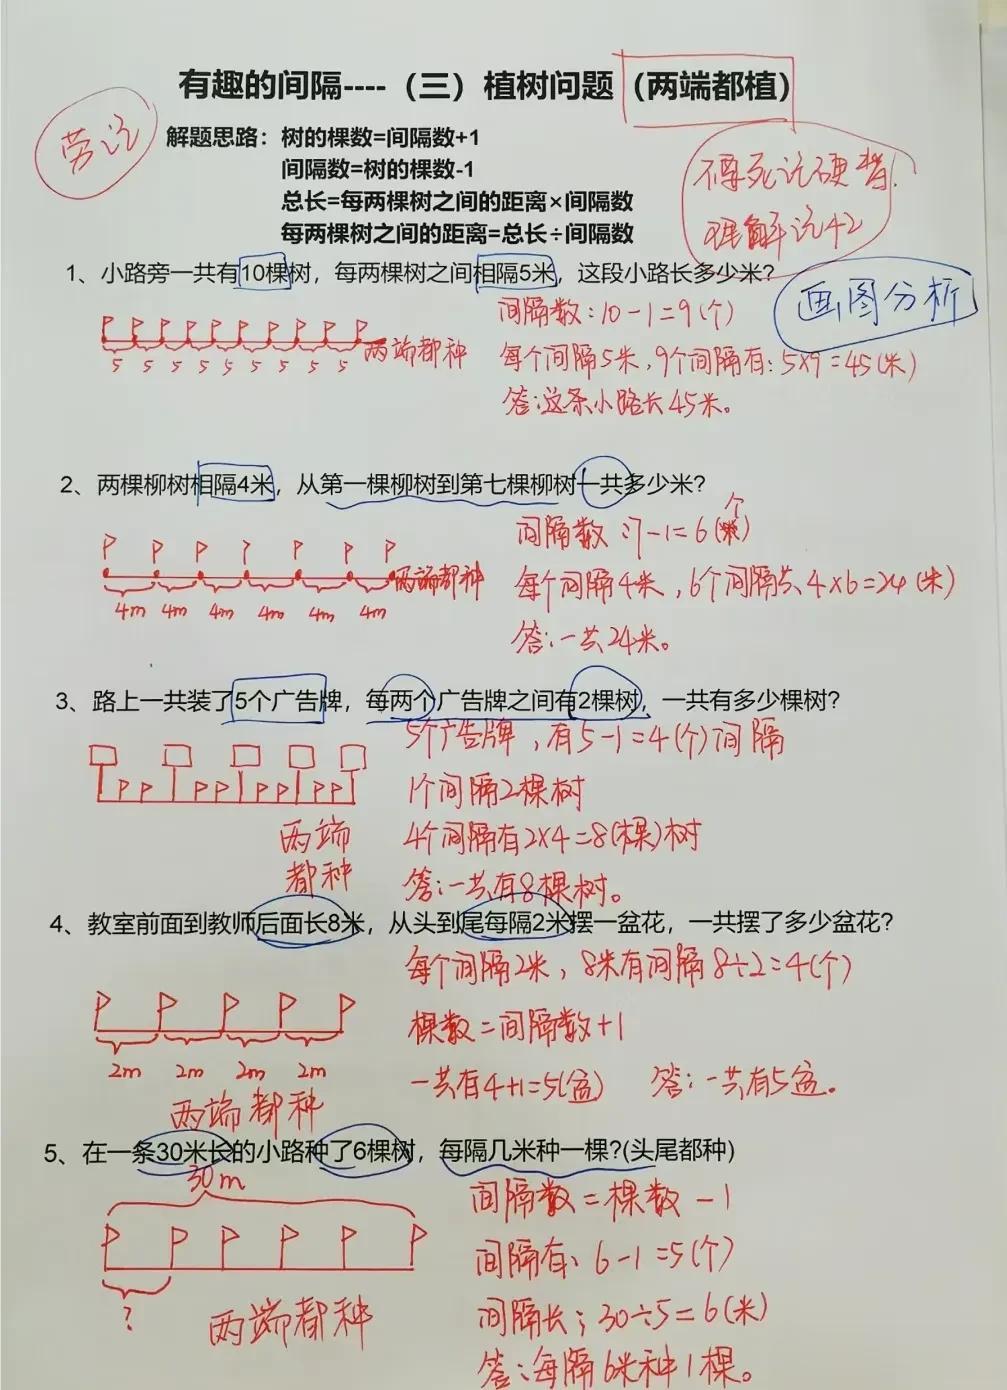 有趣的间隔----（三）植树问题（两端都植）
劳记
解题思路：树的棵数=间隔数+1
间隔数=树的棵数-1
总长=每两棵树之间的距离×间隔数
每两棵树之间的距离=总长÷间隔数
不要死记硬背！
理解记忆
1、小路旁一共有10棵树，每两棵树之间相隔5米，这段小路长多少米？
画图分析
5 5 5 5 5 5 5 5 5
两端都种
间隔数：10-1=9(个)
每个间隔5米，9个间隔有：5×9=45(米)
答：这条小路长45米。
2、两棵柳树相隔4米，从第一棵柳树到第七棵柳树一共多少米？
4m 4m 4m 4m 4m 4m
两端都种
间隔数：7-1=6(个)
每个间隔4米，6个间隔共4×6=24(米)
答：一共24米。
3、路上一共装了5个广告牌，每两个广告牌之间有2棵树，一共有多少棵树？
两端
都种
5个广告牌，有5-1=4(个)间隔
1个间隔2棵树
4个间隔有2×4=8(棵)树
答：一共有8棵树。
4、教室前面到教师后面长8米，从头到尾每隔2米摆一盆花，一共摆了多少盆花？
2m 2m 2m 2m
两端都种
每个间隔2米，8米有间隔8÷2=4(个)
棵数=间隔数+1
一共有4+1=5(盆) 答：一共有5盆。
5、在一条30米长的小路种了6棵树，每隔几米种一棵?(头尾都种)
30m
?
两端都种
间隔数=棵数-1
间隔有：6-1=5(个)
间隔长：30÷5=6(米)
答：每隔6米种1棵。